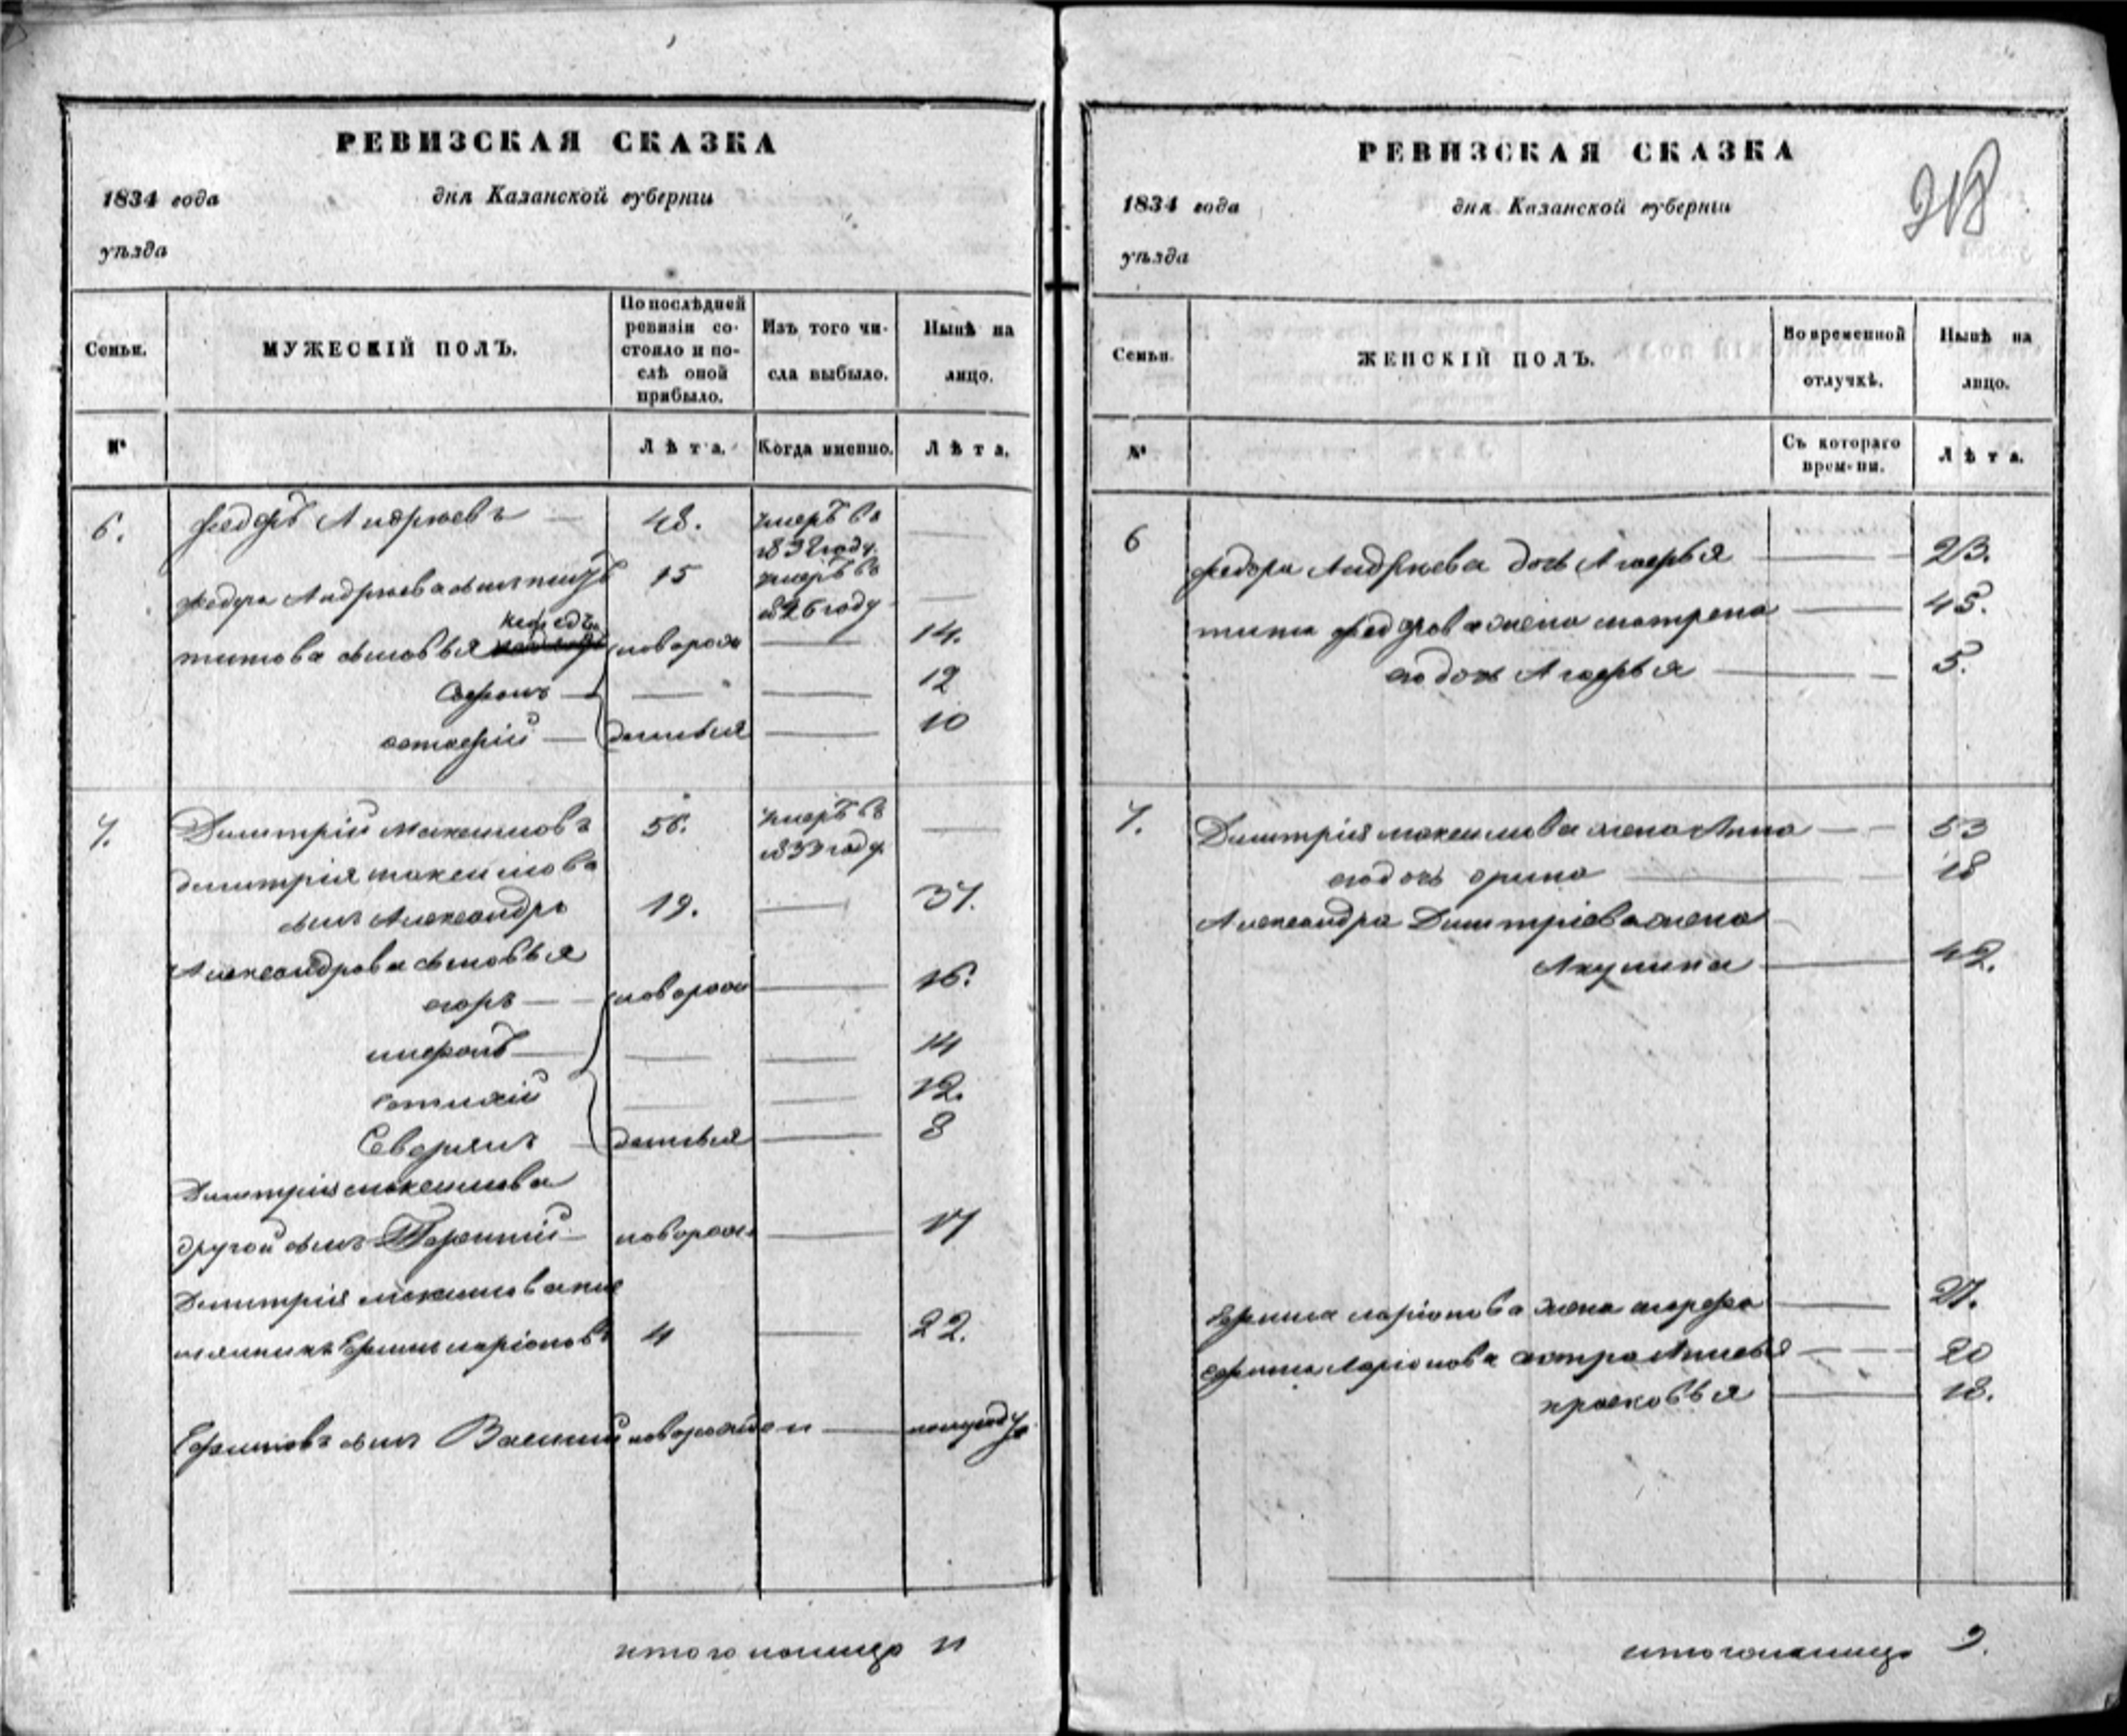 РЕВИЗСКАЯ СКАЗКА
1834 года дня Казанской губерніи
уѣзда
Семьи. МУЖЕСКІЙ ПОЛЪ. По послѣдней ревизіи состояло и послѣ оной прибыло. Изъ того числа выбыло. Нынѣ на лицо.
№ Лѣта. Когда именно. Лѣта.
6. Федоръ Андреевъ — 48. умеръ въ —
1832 году
Федора Андреева сынъ титъ 15 умеръ въ —
1826 году
титова сыновья новорож — 14.
Софонъ — — — 12
— — 10
7. Димитрій Максимовъ 56. умеръ въ —
1833 году
димитрія максимова
сынъ Александръ 19. — 37.
Александрова сыновья
егоръ — новорож — 16.
— — — 14
— — 12.
— 8
Димитрія максимова
другой сынъ Терентій новорож. — 17
Димитрія максимова пле
мянникъ Ефимъ ларіоновъ 4 — 22.
Ефимовъ сынъ Василій новорожден — полугоду
итого налицо 11
РЕВИЗСКАЯ СКАЗКА
218
1834 года дня Казанской губерніи
уѣзда
Семьи. ЖЕНСКІЙ ПОЛЪ. Во временной отлучкѣ. Нынѣ на лицо.
№ Съ котораго времени. Лѣта.
6 Федора Андреева дочь Агафья — 23.
тита федорова жена матрена — 45.
его дочь Агафья — 5.
7. Димитрія максимова жена Анна — 53
его дочь орина — 18
Александра Димитріева жена
Акулина — 42.
Ефима ларіонова жена марфа — 27.
Ефима Ларіонова сестра — 20
прасковья — 18.
итого налицо 9.